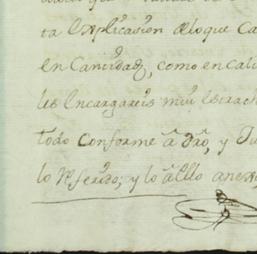 ta Explicasion de loque Ca
en Cantidad, como en Cali
les Encargareis mui Estrech
todo Conforme a dro, y Ju
lo Referido; y lo a ello anexo